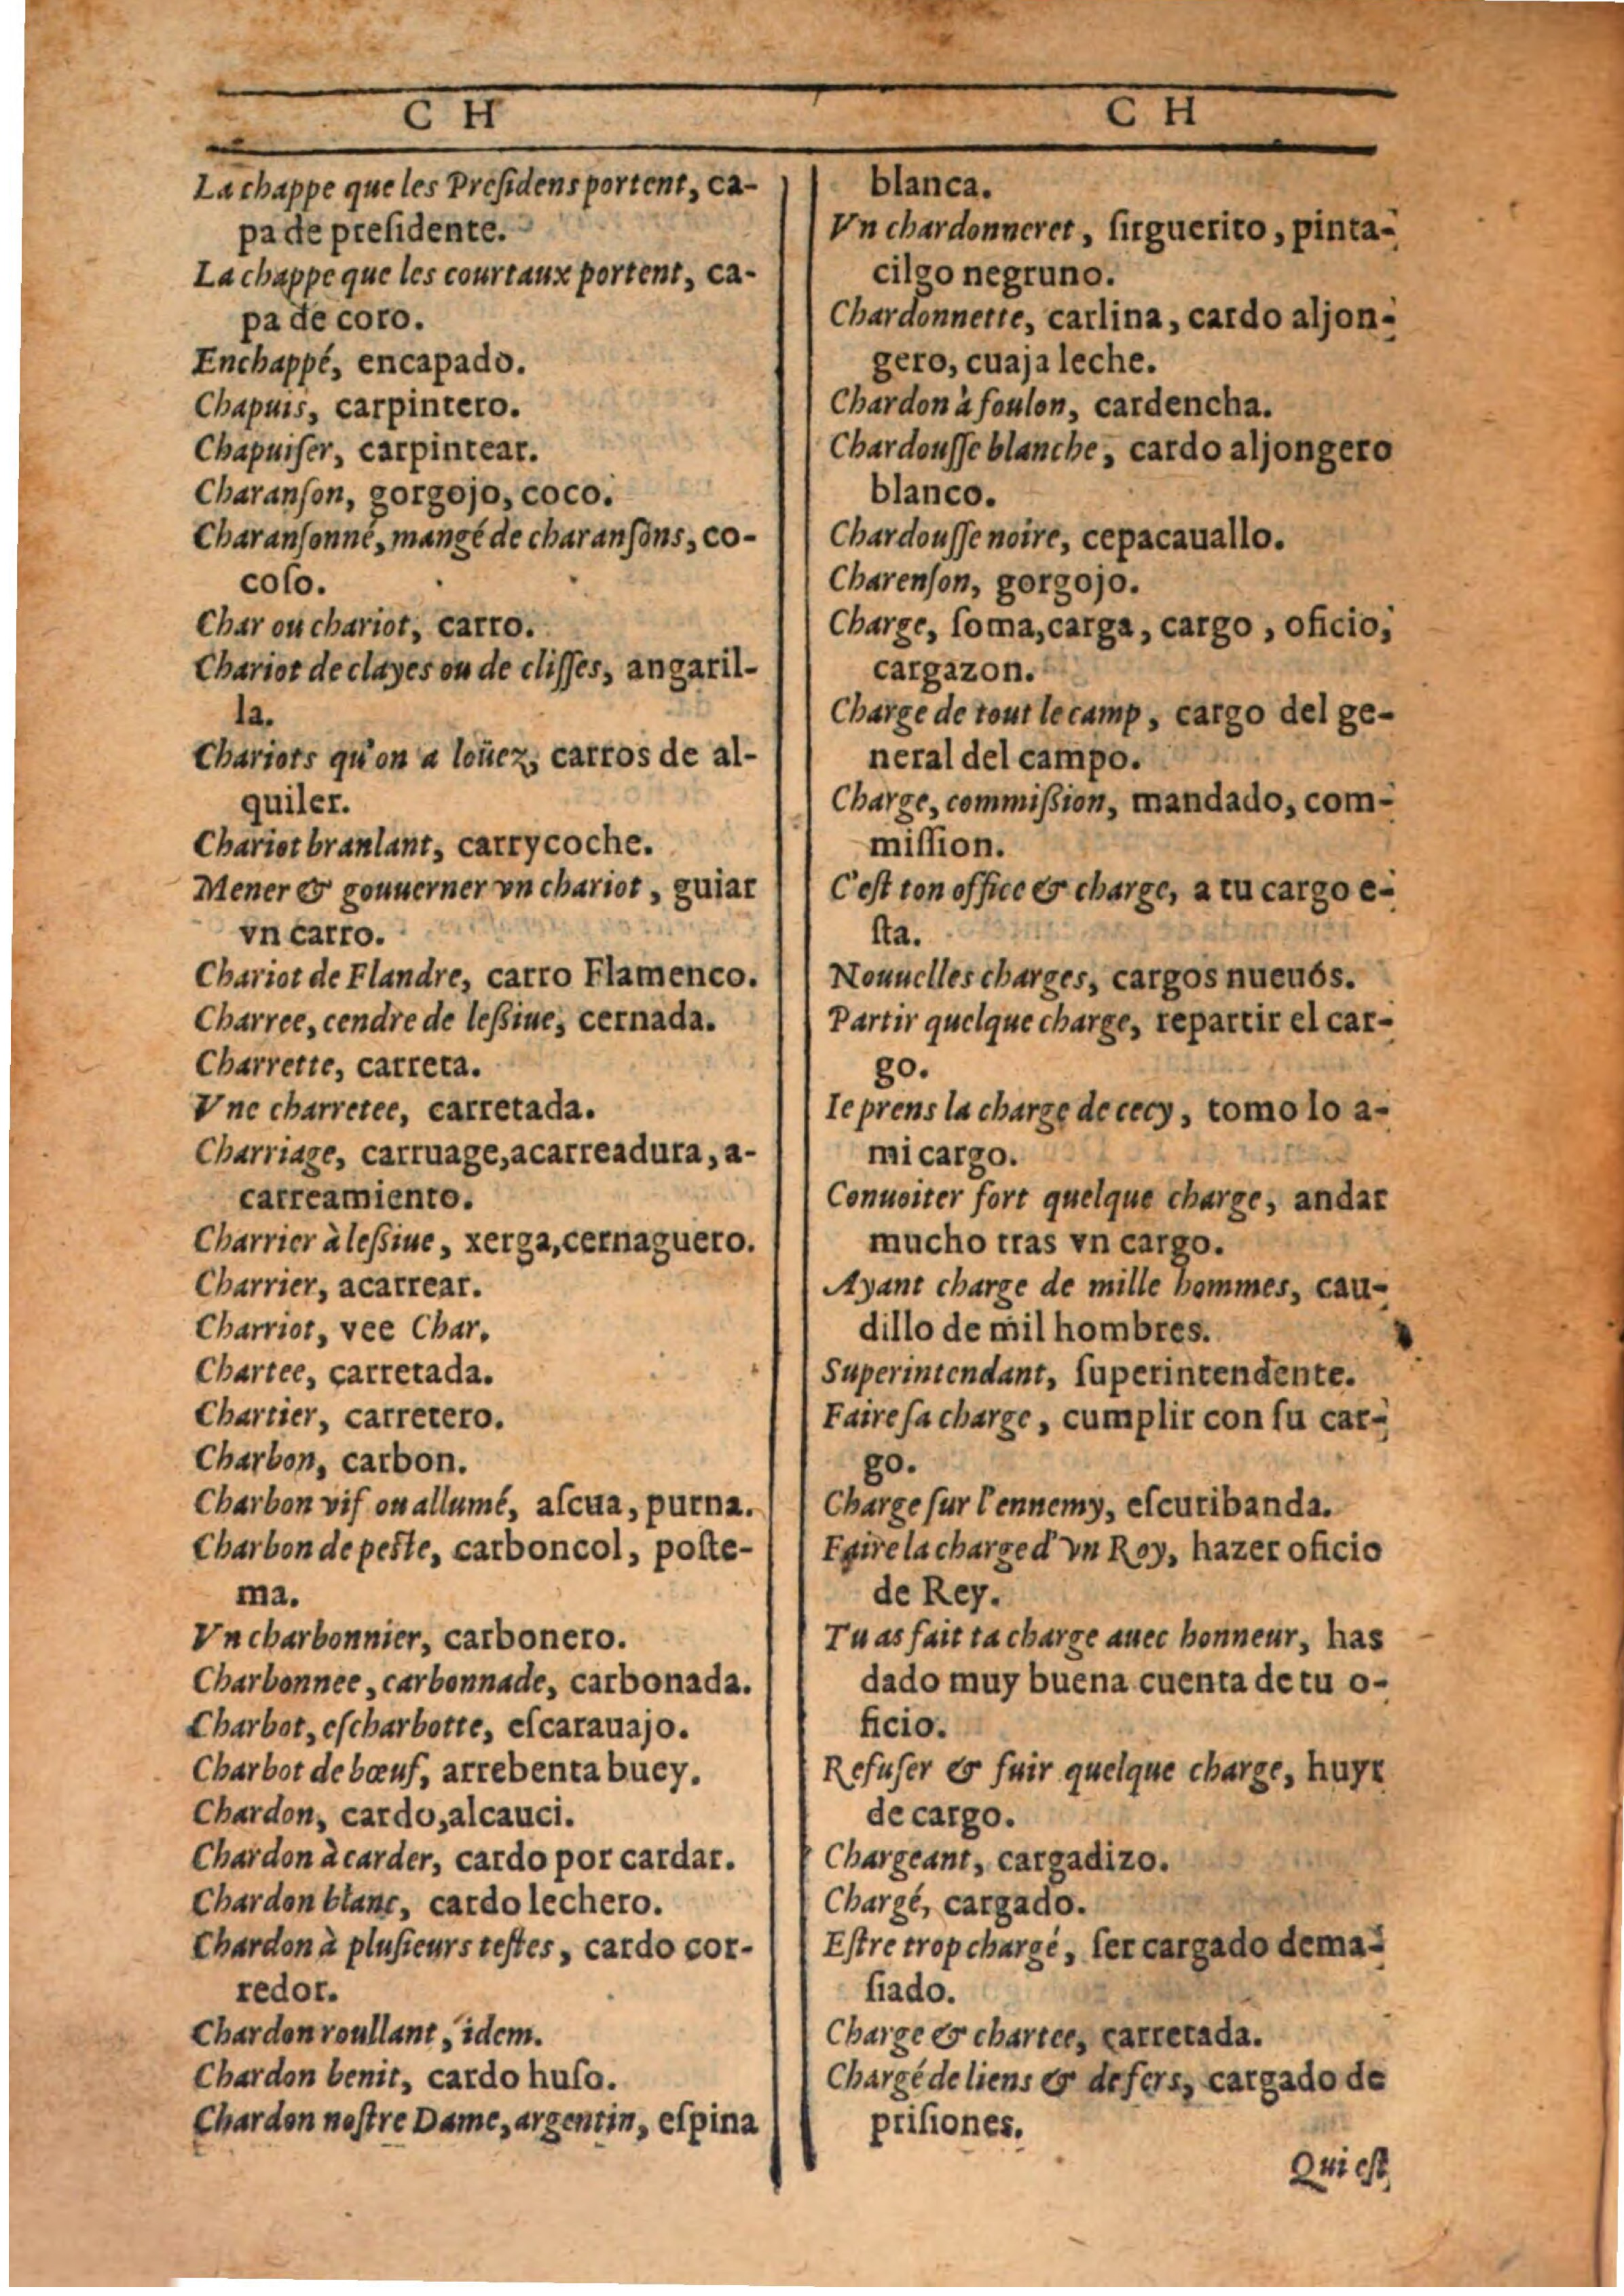 C H
La chappe que les Preſidens portent, ca-
pa de preſidente.
La chappe que les courtaux portent, ca-
pa de coro.
Enchappé, encapado.
Chapuis, carpintero.
Chapuiſer, carpintear.
Charanſon, gorgojo, coco.
Charanſonné, mangé de charanſons, co-
coſo.
Char ou chariot, carro.
Chariot de clayes ou de cliſſes, angaril-
la.
Chariots qu'on a loüez, carros de al-
quiler.
Chariot branlant, carrycoche.
Mener & gouuerner vn chariot, guiar
vn carro.
Chariot de Flandre, carro Flamenco.
Charree, cendre de leßiue, cernada.
Charrette, carreta.
Vne charretee, carretada.
Charriage, carruage, acarreadura, a-
carreamiento.
Charrier à leßiue, xerga, cernaguero.
Charrier, acarrear.
Charriot, vee Char.
Chartee, carretada.
Chartier, carretero.
Charbon, carbon.
Charbon vif ou allumé, aſcua, purna.
Charbon de peſte, carboncol, poſte-
ma.
Vn charbonnier, carbonero.
Charbonnee, carbonnade, carbonada.
Charbot, eſcharbotte, eſcarauajo.
Charbot de bœuf, arrebenta buey.
Chardon, cardo, alcauci.
Chardon à carder, cardo por cardar.
Chardon blanc, cardo lechero.
Chardon à pluſieurs teſtes, cardo cor-
redor.
Chardon roullant, idem.
Chardon benit, cardo huſo.
Chardon noſtre Dame, argentin, eſpina
C H
blanca.
Vn chardonneret, ſirguerito, pinta-
cilgo negruno.
Chardonnette, carlina, cardo aljon-
gero, cuaja leche.
Chardon à foulon, cardencha.
Chardouſſe blanche, cardo aljongero
blanco.
Chardouſſe noire, cepacauallo.
Charenſon, gorgojo.
Charge, ſoma, carga, cargo, oficio,
cargazon.
Charge de tout le camp, cargo del ge-
neral del campo.
Charge, commißion, mandado, com-
miſſion.
C'eſt ton office & charge, a tu cargo e-
ſta.
Nouuelles charges, cargos nueuos.
Partir quelque charge, repartir el car-
go.
Ie prens la charge de cecy, tomo lo a-
mi cargo.
Conuoiter fort quelque charge, andar
mucho tras vn cargo.
Ayant charge de mille hommes, cau-
dillo de mil hombres.
Superintendant, ſuperintendente.
Faire ſa charge, cumplir con ſu car-
go.
Charge ſur l'ennemy, eſcuribanda.
Faire la charge d'vn Roy, hazer oficio
de Rey.
Tu as fait ta charge auec honneur, has
dado muy buena cuenta de tu o-
ficio.
Refuſer & fuir quelque charge, huyr
de cargo.
Chargeant, cargadizo.
Chargé, cargado.
Eſtre trop chargé, ſer cargado dema-
ſiado.
Charge & chartee, carretada.
Chargé de liens & de fers, cargado de
priſiones.
Qui eſt